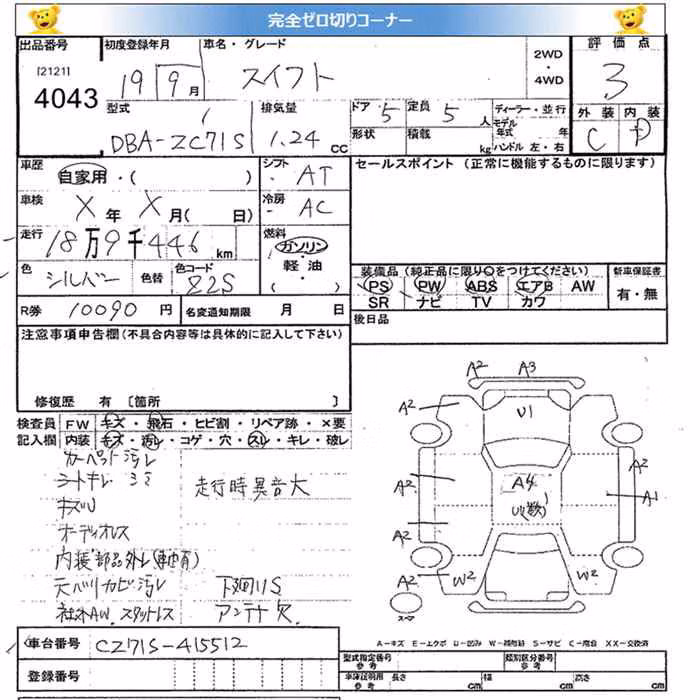 完全ゼロ切りコーナー
出品番号 初度登録年月 車名・グレード 2WD ・ 4WD 評価点
[2121] 4043 19 9月 スイフト 3
型式 排気量 ドア 5 定員 5人 ディーラー・並行 外装 内装
DBA-ZC71S 1.24 cc 形状 積載 kg モデル年式 年 C D
ハンドル 左・右
車歴 自家用・( ) シフト AT セールスポイント (正常に機能するものに限ります)
車検 X年 X月( 日) 冷房 AC
走行 18万9千446km 燃料 ガソリン
軽・油
( )
色 シルバー 色替 色コード Z2S 装備品 (純正品に限り○をつけてください) 新車保証書
PS PW ABS エアB AW 有・無
SR ナビ TV カワ
R券 10090円 名変通知期限 月 日 後日品
注意事項申告欄(不具合内容等は具体的に記入して下さい)
修復歴 有 [箇所 ]
検査員 FW キズ・飛石・ヒビ割・リペア跡・×要
記入欄 内装 キズ・汚レ・コゲ・穴・スレ・キレ・破レ
カーペット汚レ
シートキレ
キズU
走行時異音大
オーディオレス
内装部品外レ(車内有)
天バリカビ汚レ 下廻りS
社外AW スタットレス アンテナ欠
A2 A3
A2 U1
A2 A4 U(数) A2 A1
A2 A2
A2 W2 W2
スペア
車台番号 CZ71S-415512
A-キズ E-エクボ U-凹み W-補修跡 S-サビ C-腐食 XX-交換済
登録番号
型式指定番号 参考 類別区分番号 参考
車庫証明用 参考 長さ cm 幅 cm 高さ cm